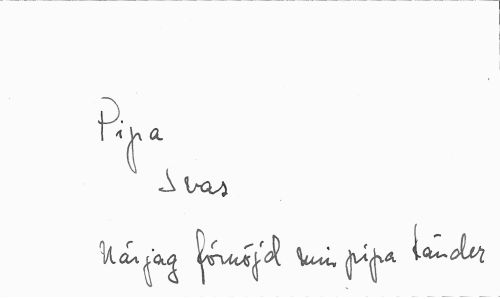 Pipa
Ivas
Närjag förnöjd min pipa tänder